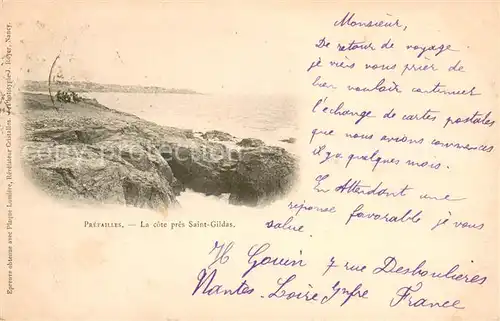 Monsieur,
De retour de voyage
je viens vous prier de
bien vouloir continuer
l'échange de cartes postales
que nous avions commencés
il y a quelques mois.
En Attendant une
réponse favorable je vous
salue.
H Gouin 7 rue Desboulières
Nantes. Loire Infre France
PRÉFAILLES. — La côte près Saint-Gildas.
Epreuve obtenue avec Plaque Lumière, Révélateur Cristallos. Phototypie J. Royer, Nancy.